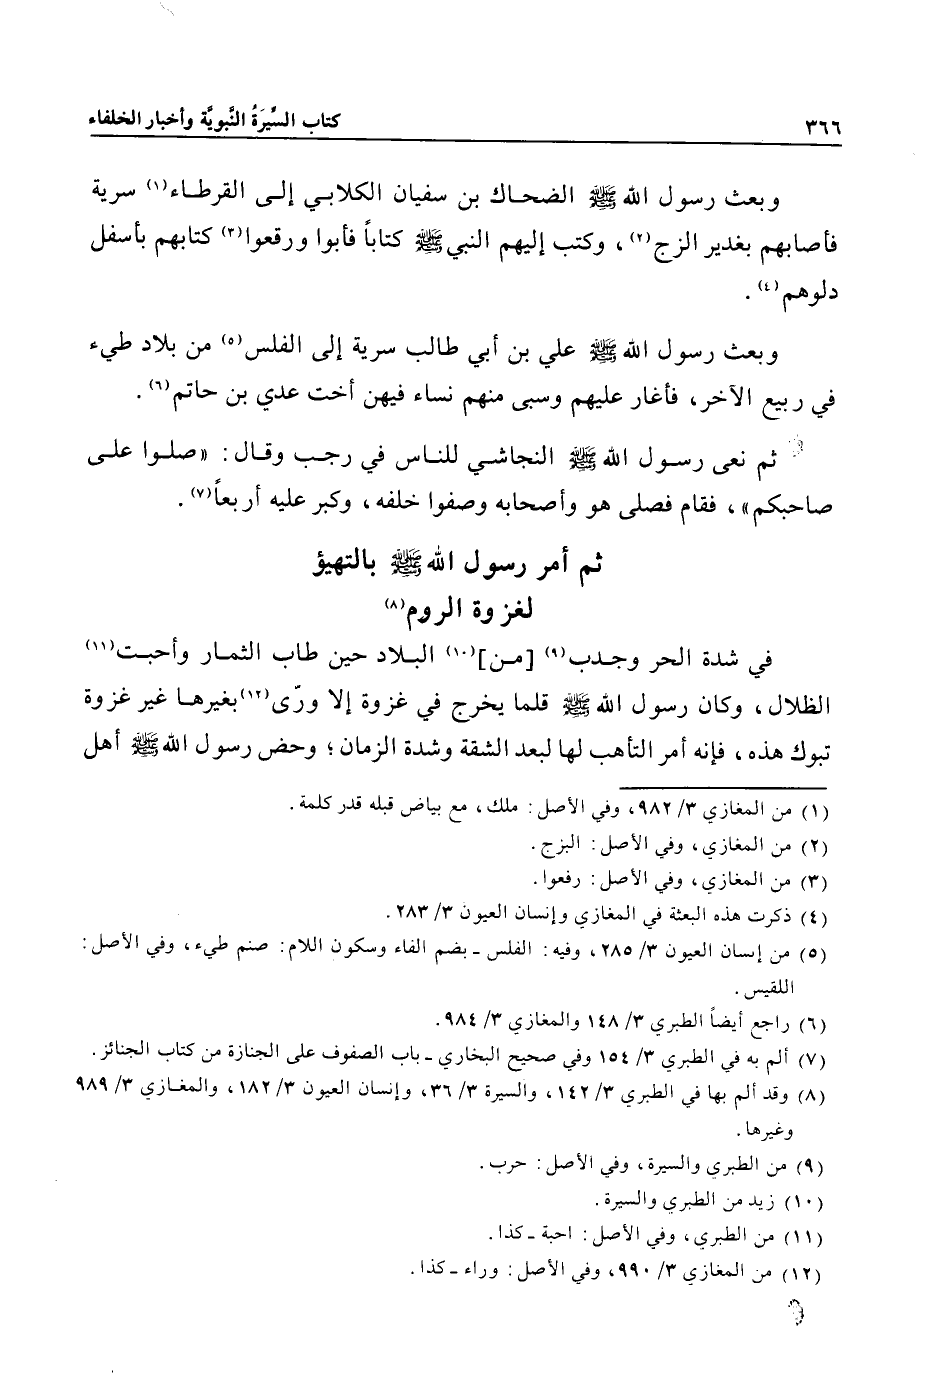 ٣٦٦ كتاب السِّيرَةُ النَّبويَّة وأخبار الخلفاء
وبعث رسول الله ﷺ الضحاك بن سفيان الكلابي إلى القرطاء(١) سرية
فأصابهم بغدير الزج(٢)، وكتب إليهم النبي ﷺ كتاباً فأبوا ورقعوا(٣) كتابهم بأسفل
دلوهم(٤).
وبعث رسول الله ﷺ علي بن أبي طالب سرية إلى الفلس(٥) من بلاد طيء
في ربيع الآخر، فأغار عليهم وسبى منهم نساء فيهن أخت عدي بن حاتم(٦).
ثم نعى رسول الله ﷺ النجاشي للناس في رجب وقال: «صلوا على
صاحبكم»، فقام فصلى هو وأصحابه وصفوا خلفه، وكبر عليه أربعاً(٧).
ثم أمر رسول الله ﷺ بالتهيؤ
لغزوة الروم(٨)
في شدة الحر وجدب(٩) [من](١٠) البلاد حين طاب الثمار وأحبت(١١)
الظلال، وكان رسول الله ﷺ قلما يخرج في غزوة إلا ورّى(١٢) بغيرها غير غزوة
تبوك هذه، فإنه أمر التأهب لها لبعد الشقة وشدة الزمان؛ وحض رسول الله ﷺ أهل
(١) من المغازي ٣/ ٩٨٢، وفي الأصل: ملك، مع بياض قبله قدر كلمة.
(٢) من المغازي، وفي الأصل: البزج.
(٣) من المغازي، وفي الأصل: رفعوا.
(٤) ذكرت هذه البعثة في المغازي وإنسان العيون ٣/ ٢٨٣.
(٥) من إنسان العيون ٣/ ٢٨٥، وفيه: الفلس ـ بضم الفاء وسكون اللام: صنم طيء، وفي الأصل:
اللقيس.
(٦) راجع أيضاً الطبري ٣/ ١٤٨ والمغازي ٣/ ٩٨٤.
(٧) ألم به في الطبري ٣/ ١٥٤ وفي صحيح البخاري ـ باب الصفوف على الجنازة من كتاب الجنائز.
(٨) وقد ألم بها في الطبري ٣/ ١٤٢، والسيرة ٣/ ٣٦، وإنسان العيون ٣/ ١٨٢، والمغازي ٣/ ٩٨٩
وغيرها.
(٩) من الطبري والسيرة، وفي الأصل: حرب.
(١٠) زيد من الطبري والسيرة.
(١١) من الطبري، وفي الأصل: احبة ـ كذا.
(١٢) من المغازي ٣/ ٩٩٠، وفي الأصل: وراء ـ كذا.